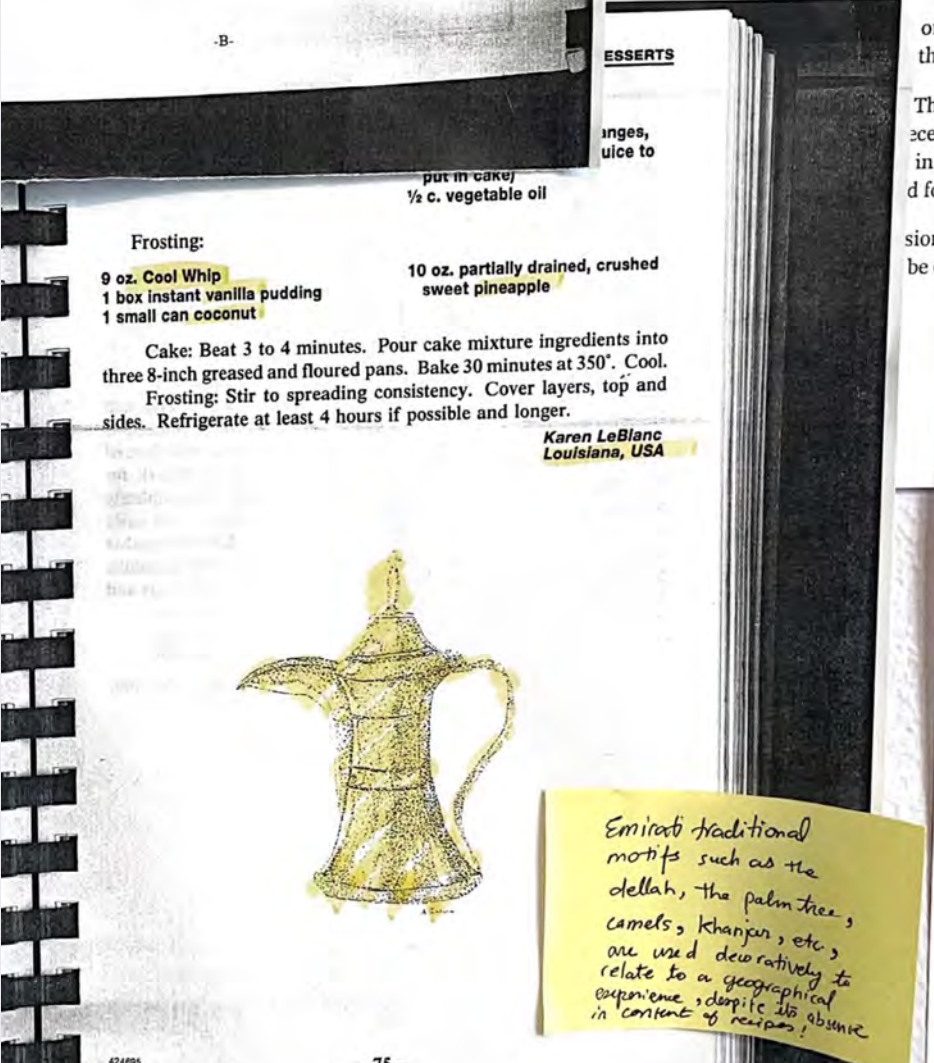 -B-
ESSERTS
anges,
uice to
put in cake)
½ c. vegetable oil
Frosting:
9 oz. Cool Whip
1 box instant vanilla pudding
1 small can coconut
10 oz. partially drained, crushed
sweet pineapple
Cake: Beat 3 to 4 minutes. Pour cake mixture ingredients into
three 8-inch greased and floured pans. Bake 30 minutes at 350°. Cool.
Frosting: Stir to spreading consistency. Cover layers, top and
sides. Refrigerate at least 4 hours if possible and longer.
Karen LeBlanc
Louisiana, USA
Emirati traditional
motifs such as the
dellah, the palm tree,
camels, khanjar, etc,
are used decoratively to
relate to a geographical
experience, despite its absence
in content of recipes!
424895
75
th
Th
ece
in
d fo
sion
be